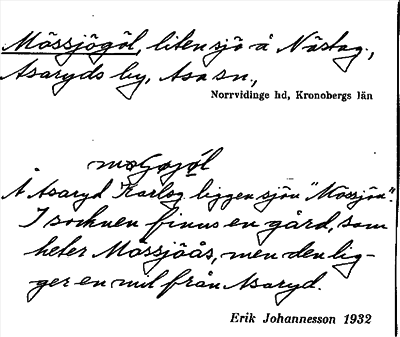 Måssjögöl, liten sjö å Nästag.,
Asaryds by, Asa sn.,
Norrvidinge hd, Kronobergs län
Å Asaryd Karlsg ligger sjön "Mossjön".
I socknen finns en gård, som
heter Måssjöås, men den lig-
ger en mil från Asaryd.
Erik Johannesson 1932